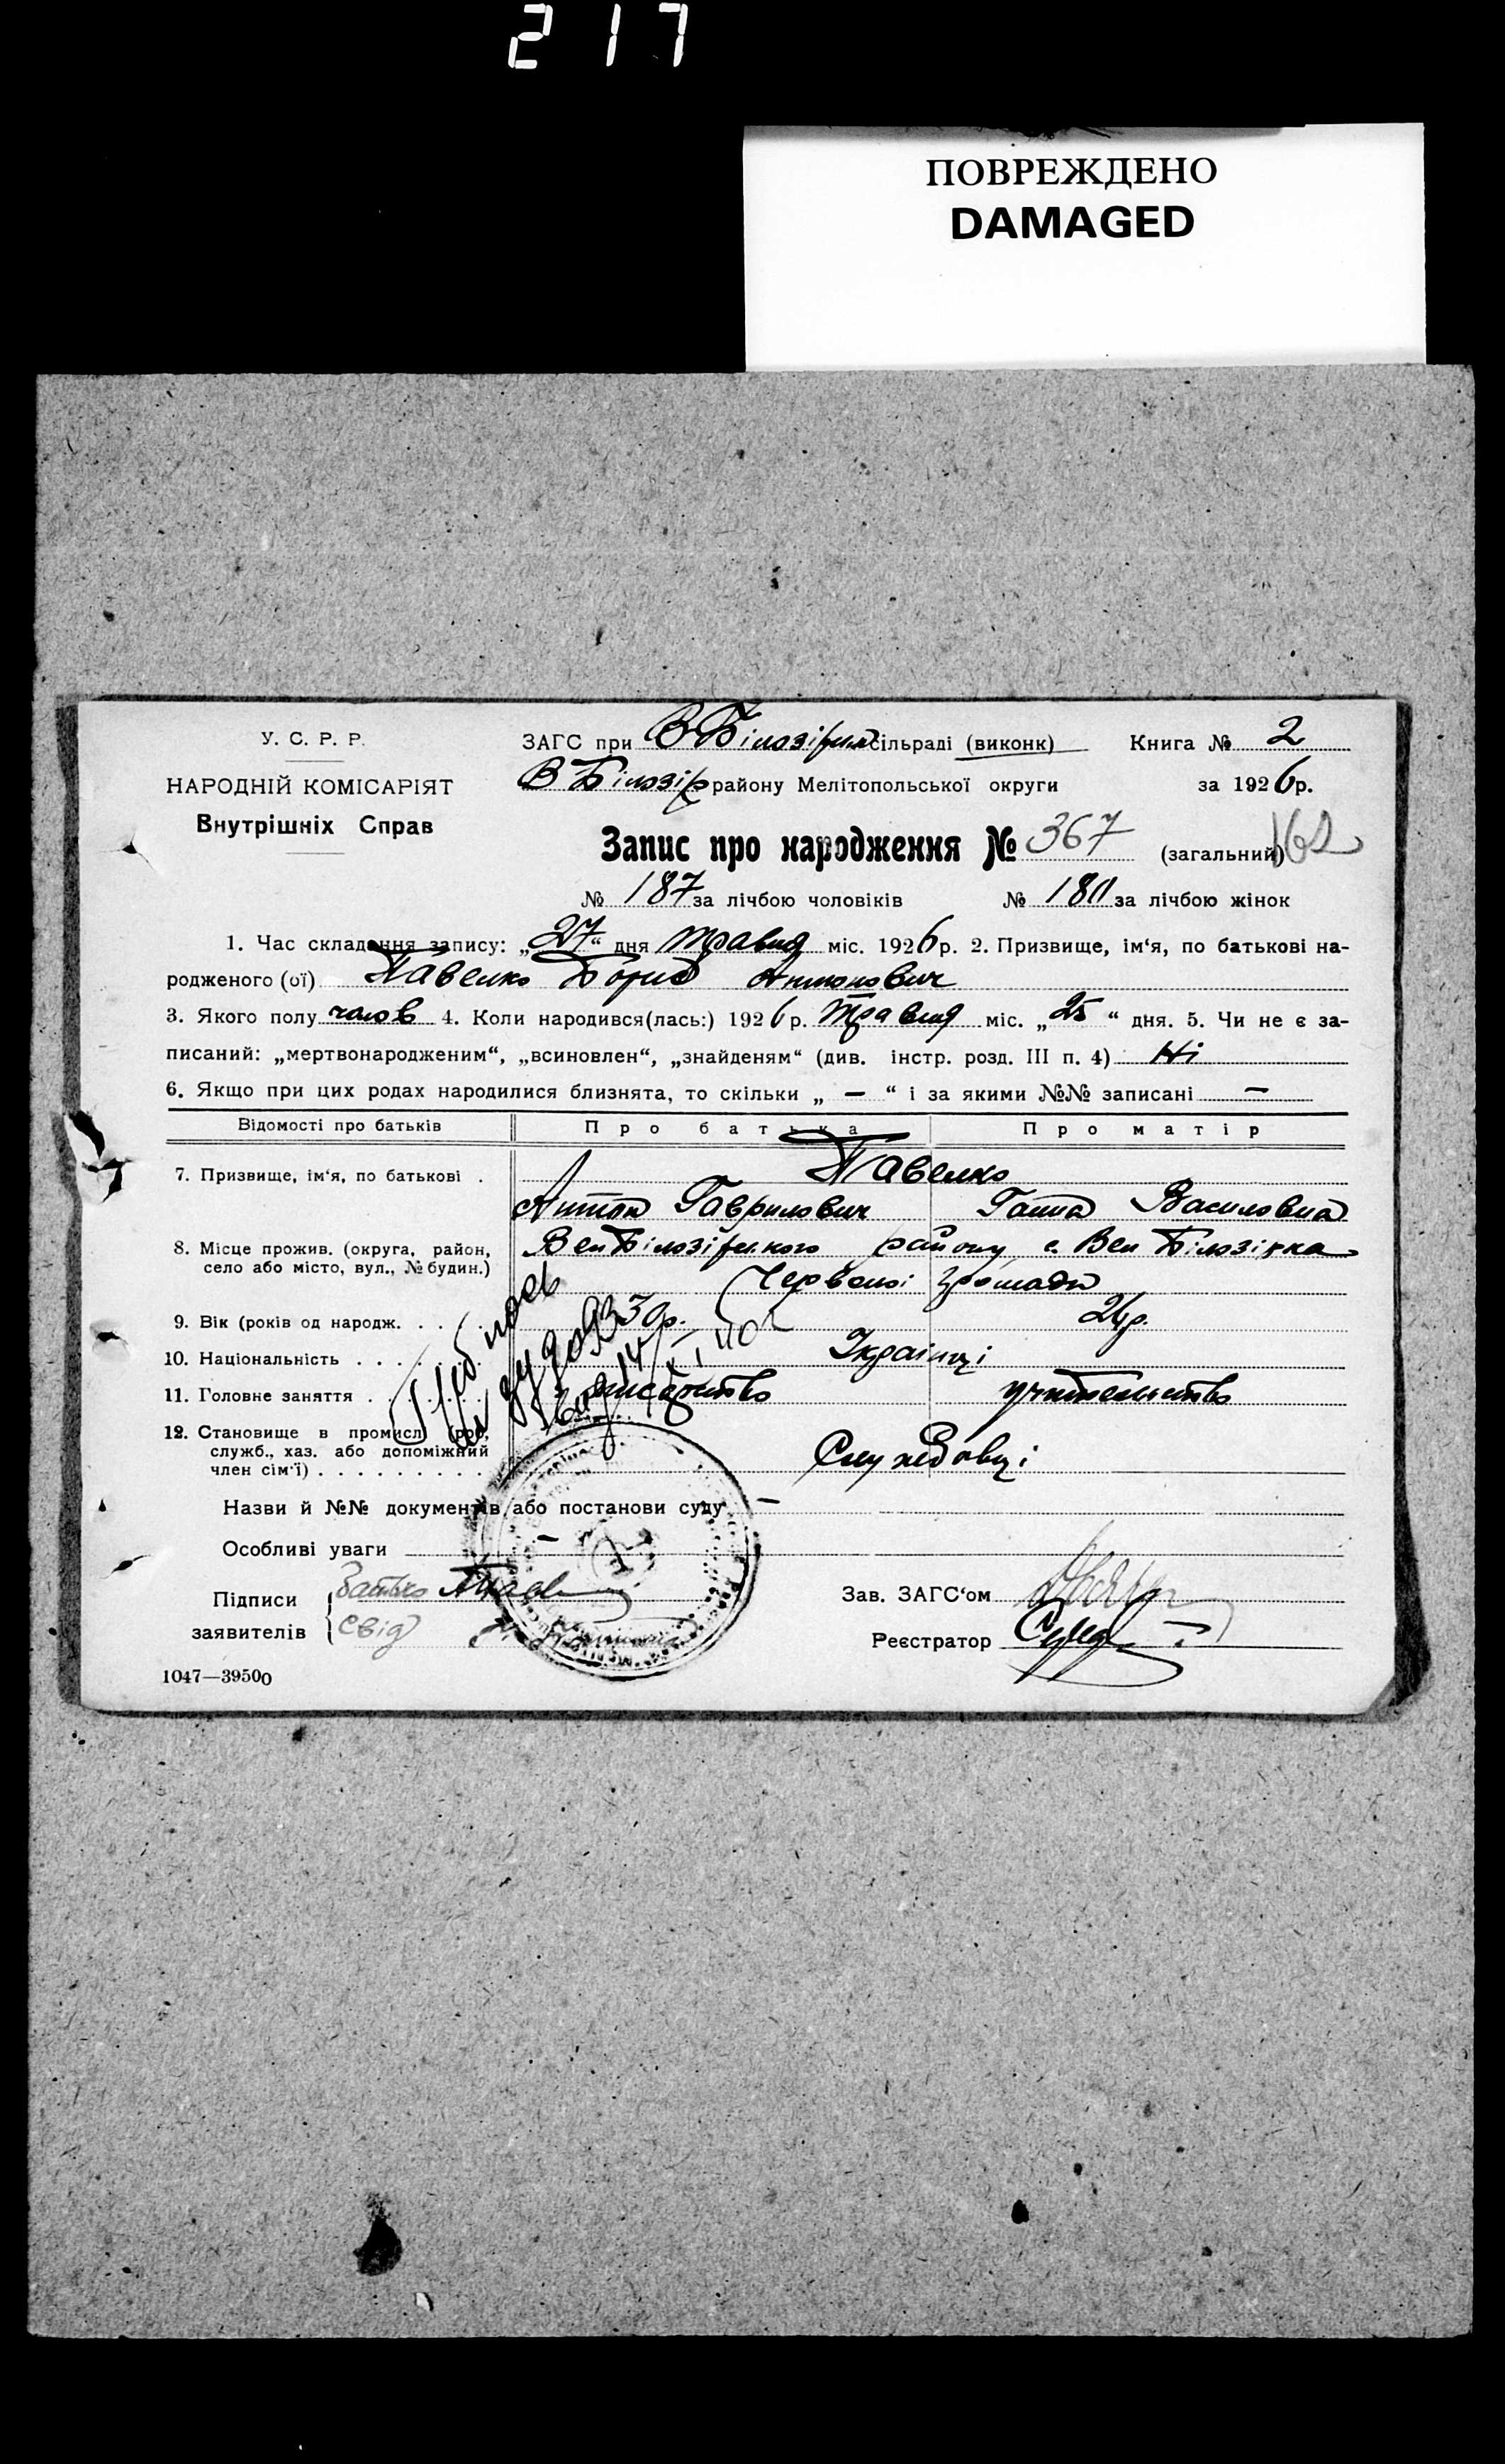 217
ПОВРЕЖДЕНО
DAMAGED
У. С. Р. Р.
НАРОДНІЙ КОМІСАРІЯТ
Внутрішніх Справ
ЗАГС при В Білозірськ сільраді (виконк) Книга № 2
В Білозір району Мелітопольської округи за 1926 р.
Запис про народження № 367 (загальний) 162
№ 187 за лічбою чоловіків № 180 за лічбою жінок
1. Час складання запису: „27“ дня травня міс. 1926 р. 2. Призвище, ім‘я, по батькові на-
родженого (ої) Павелко Борис Антонович
3. Якого полу чолов 4. Коли народився(лась:) 1926 р. Травня міс. „25“ дня. 5. Чи не є за-
писаний: „мертвонародженим“, „всиновлен“, „знайденям“ (див. інстр. розд. III п. 4) Ні
6. Якщо при цих родах народилися близнята, то скільки „ — “ і за якими №№ записані —
Відомості про батьків Про батька Про матір
7. Призвище, ім‘я, по батькові . Павелко
Антон Гаврилович Ганна Василовна
8. Місце прожив. (округа, район,
село або місто, вул., № будин.)
Вел Білозірського району с. Вел Білозірка
Червоної громади
9. Вік (років од народж. . . . 30 р. 26 р.
10. Національність . . . . Українці
11. Головне заняття . . . писарство учительство
12. Становище в промисл (роб,
служб., хаз. або допоміжний
член сім‘ї) . . . . . . . . . Службовці
Назви й №№ документів або постанови суду —
Особливі уваги —
Підписи
заявителів
Батько
Свід
Зав. ЗАГС‘ом
Реєстратор
1047—39500